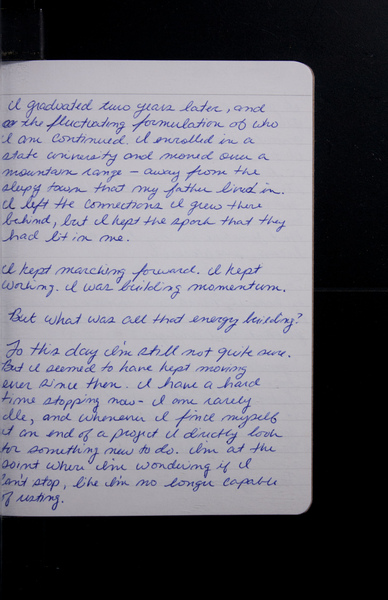 I graduated two years later, and
the fluctuating formulation of who
I am continued. I enrolled in a
state university and moved over a
mountain range – away from the
sleepy town that my father lived in.
I left the connections I grew there
behind, but I kept the spark that they
had lit in me.
I kept marching forward. I kept
working. I was building momentum.
But what was all that energy building?
To this day I'm still not quite sure.
But I seemed to have kept moving
ever since then. I have a hard
time stopping now – I am rarely
idle, and whenever I find myself
at an end of a project I directly look
for something new to do. I'm at the
point where I'm wondering if I
can't stop, like I'm no longer capable
of resting.